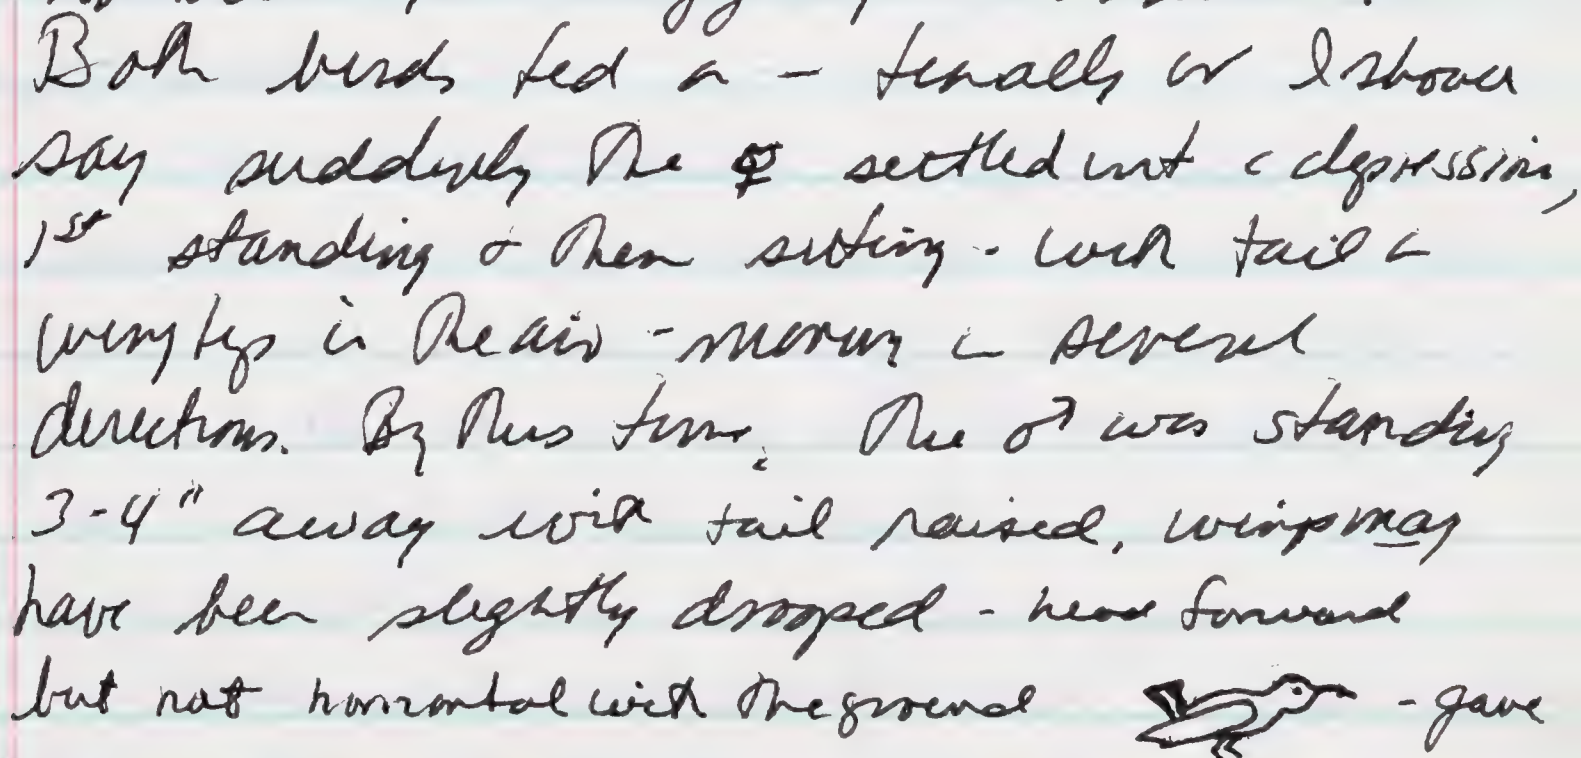 Both birds fed on - finally or I should
say suddenly the ♀ settled into a depression,
1st standing & then sitting - with tail &
wing tips in the air - moving in several
directions. By this time, the ♂ was standing
3-4" away with tail raised, wings may
have been slightly drooped - head forward
but not horizontal with the ground - gave